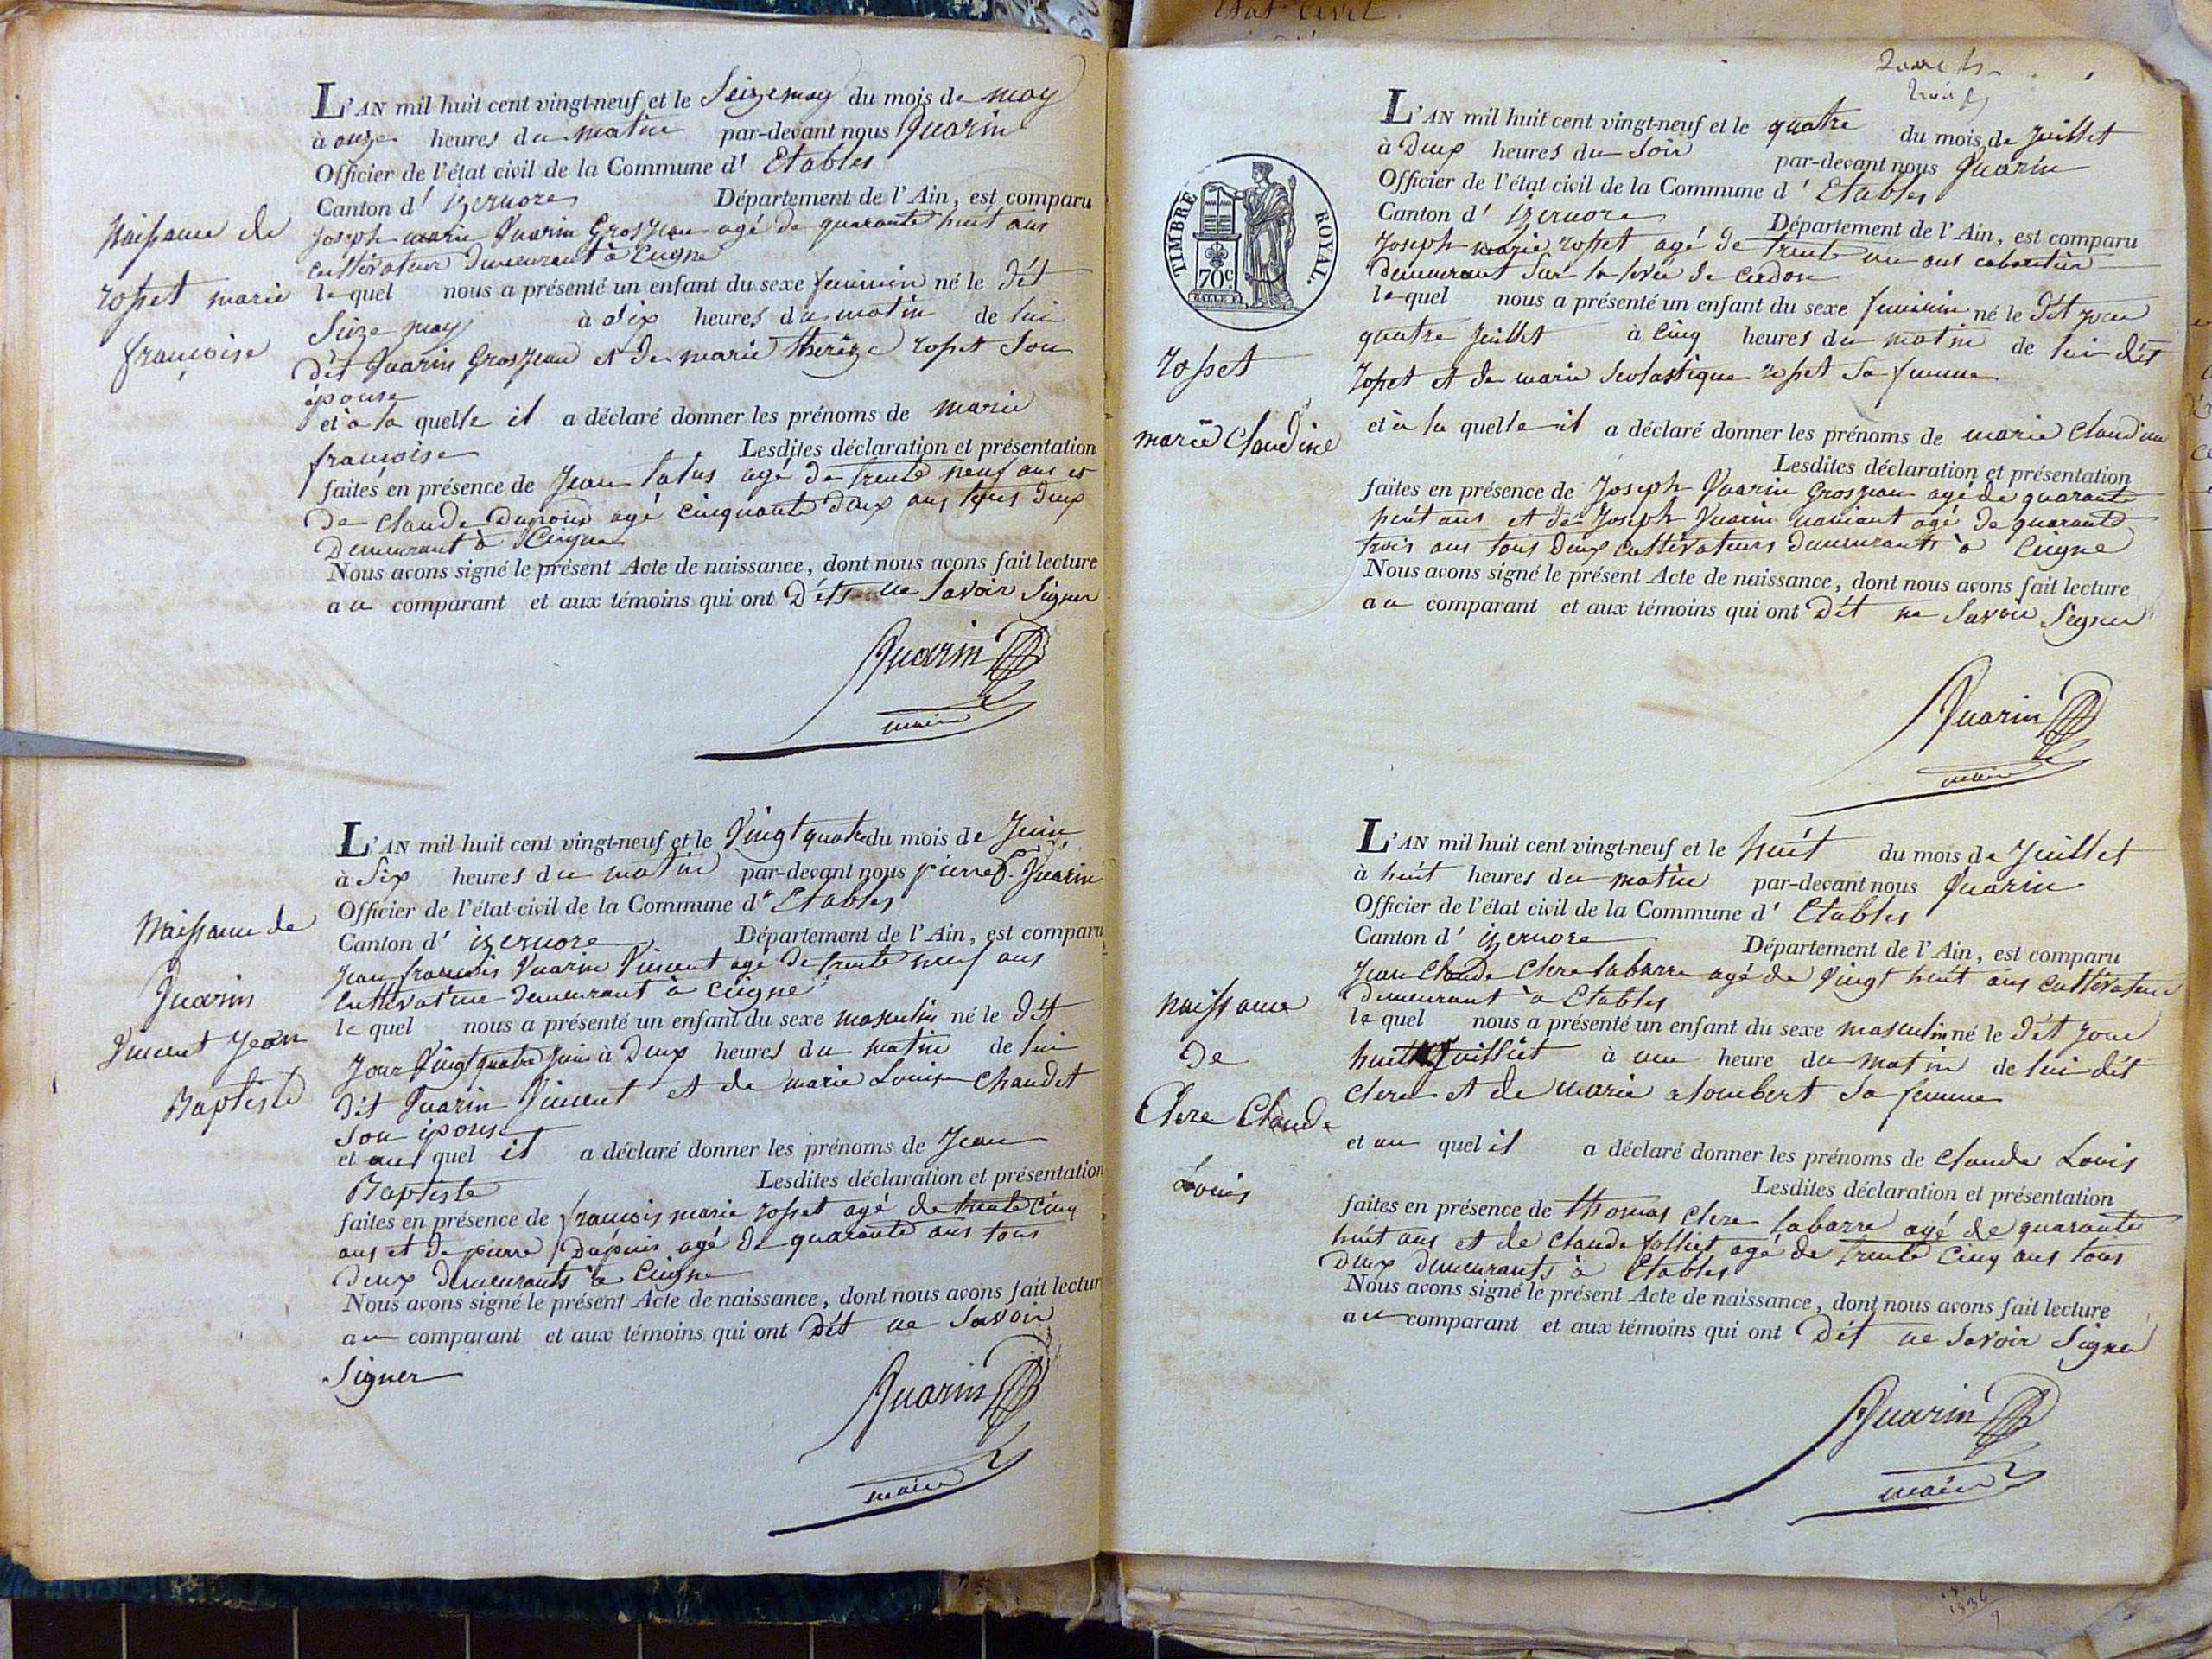 Etat Civil
L'AN mil huit cent vingt-neuf et le Seize may du mois de may
à onze heures du matin par-devant nous Quarin
Officier de l'état civil de la Commune d' Etables
Canton d' izernore Département de l'Ain, est comparu
Joseph marie Quarin Grosjean agé de quarante huit ans
Cultivateur demeurant à Ceigne
le quel nous a présenté un enfant du sexe feminin né le dét
Seize may à dix heures du matin de lui
dét Quarin Grosjean et de marie thereze rosset son
épouse
et à la quelle il a déclaré donner les prénoms de marie
francoise Lesdites déclaration et présentation
faites en présence de Jean tatus agé de trente neuf ans et
de Claude Dupuis agé cinquante deux ans tous deux
demeurant à Ceigne
Nous avons signé le présent Acte de naissance, dont nous avons fait lecture
au comparant et aux témoins qui ont déts ne savoir signer
Quarin
maire
Naissance de
rosset marie
francoise
L'AN mil huit cent vingt-neuf et le Vingt quatre du mois de Juin
à Six heures du matin par-devant nous pierre f. Quarin
Officier de l'état civil de la Commune d' Etables
Canton d' izernore Département de l'Ain, est comparu
Jean francois Quarin Vincent agé de trente neuf ans
Cultivateur demeurant à Ceigne
le quel nous a présenté un enfant du sexe masculin né le dét
Jour Vingt quatre Juin à deux heures du matin de lui
dét Quarin Vincent et de marie Louise Chaudet
son épouse
et au quel il a déclaré donner les prénoms de Jean
Baptiste Lesdites déclaration et présentation
faites en présence de francois marie rosset agé de trente cinq
ans et de pierre Dupuis agé de quarante ans tous
deux demeurants à Ceigne
Nous avons signé le présent Acte de naissance, dont nous avons fait lectur
au comparant et aux témoins qui ont dét ne savoir
signer
Quarin
maire
Naissance de
Quarin
Vincent Jean
Baptiste
L'AN mil huit cent vingt-neuf et le quatre du mois de Juillet
à deux heures du soir par-devant nous Quarin
Officier de l'état civil de la Commune d' Etables
Canton d' izernore Département de l'Ain, est comparu
Joseph marie rosset agé de trente un ans cabaretier
demeurant sur la levée de Cerdon
le quel nous a présenté un enfant du sexe feminin né le dét jour
quatre Juillet à cinq heures du matin de lui dét
rosset et de marie Scolastique rosset sa femme
et à la quelle il a déclaré donner les prénoms de marie Claudine
Lesdites déclaration et présentation
faites en présence de Joseph Quarin Grosjean agé de quarante
huit ans et de Joseph Quarin agé de quarante
trois ans tous deux cultivateurs demeurants à Ceigne
Nous avons signé le présent Acte de naissance, dont nous avons fait lecture
au comparant et aux témoins qui ont dét ne savoir signer
Quarin
maire
TIMBRE ROYAL.
70c.
rosset
marie Claudine
L'AN mil huit cent vingt-neuf et le huit du mois de Juillet
à huit heures du matin par-devant nous Quarin
Officier de l'état civil de la Commune d' Etables
Canton d' izernore Département de l'Ain, est comparu
Jean Claude Clere labarre agé de Vingt huit ans cultivateur
demeurant à Etables
le quel nous a présenté un enfant du sexe masculin né le dét jour
huit Juilliet à une heure du matin de lui dét
Clere et de marie alombert sa femme
et au quel il a déclaré donner les prénoms de Claude Louis
Lesdites déclaration et présentation
faites en présence de thomas Clere labarre agé de quarante
huit ans et de Claude Jolliet agé de trente cinq ans tous
deux demeurants à Etables
Nous avons signé le présent Acte de naissance, dont nous avons fait lecture
au comparant et aux témoins qui ont dét ne savoir signer
Quarin
maire
Naissance
de
Clere Claude
Louis
1836